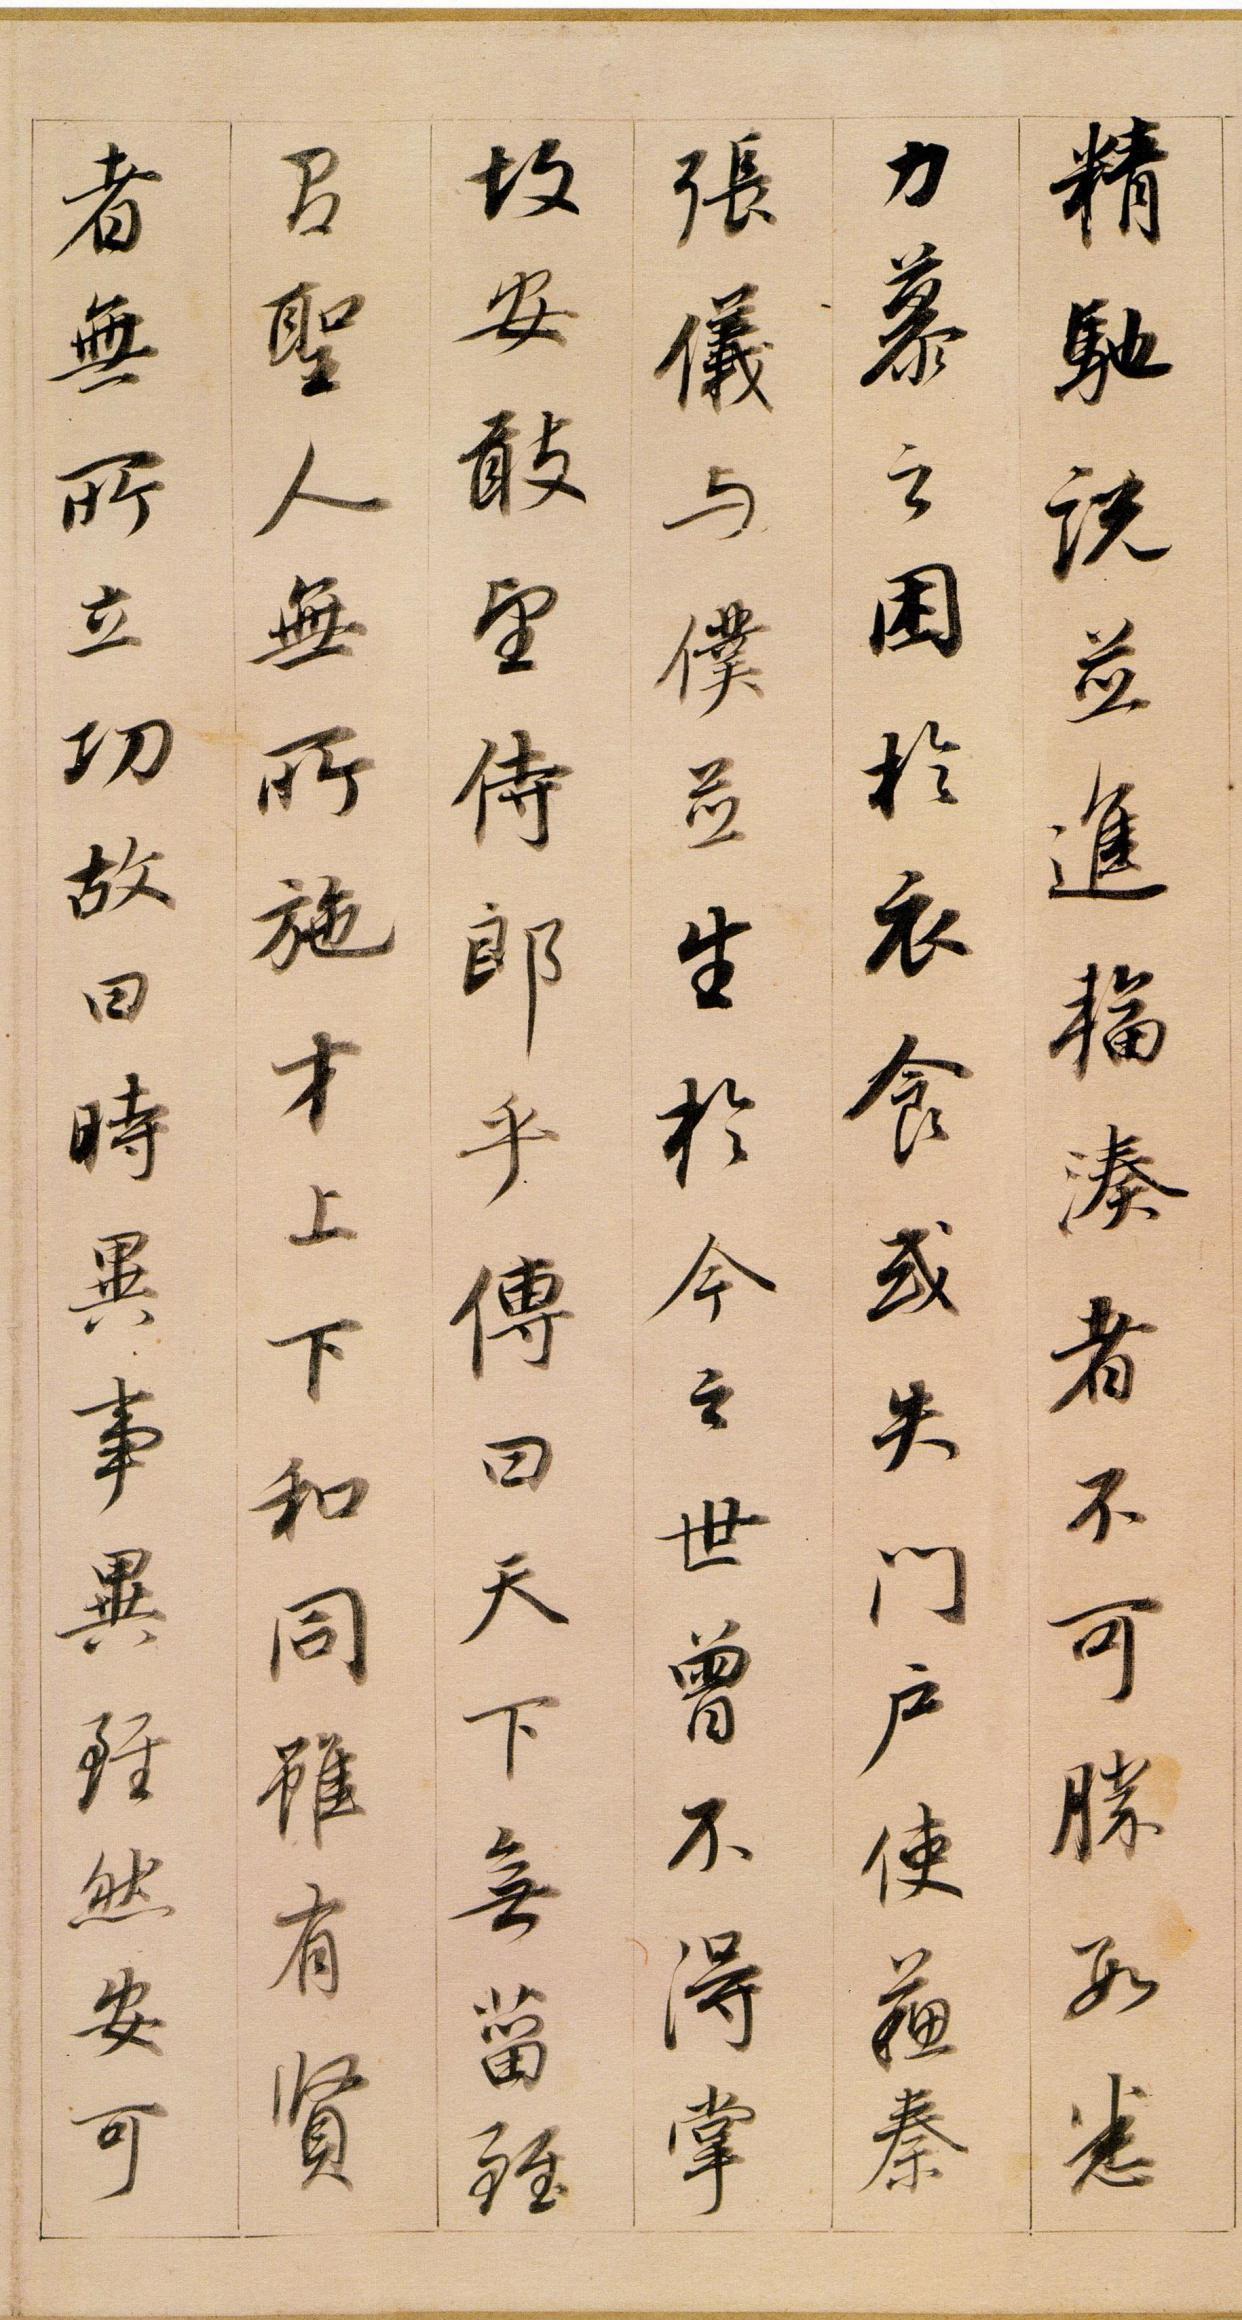 精馳説並進輻湊者不可勝數悉
力慕之困於衣食或失門户使蘓秦
張儀与僕並生於今之世曾不得掌
故安敢望侍郎乎傳曰天下無菑雖
有聖人無所施才上下和同雖有賢
者無所立功故曰時異事異雖然安可